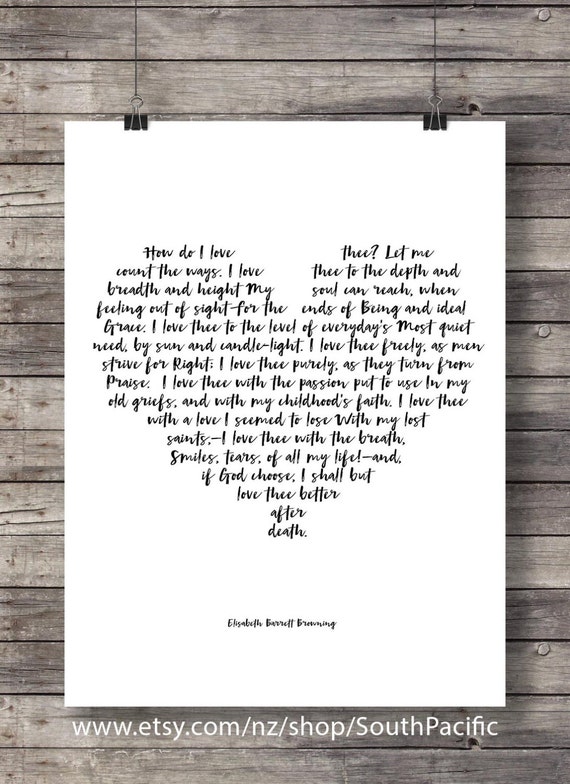 How do I love thee? Let me
count the ways. I love thee to the depth and
breadth and height My soul can reach, when
feeling out of sight-For the ends of Being and ideal
Grace. I love thee to the level of everyday's Most quiet
need, by sun and candle-light. I love thee freely, as men
strive for Right; I love thee purely, as they turn from
Praise. I love thee with the passion put to use In my
old griefs, and with my childhood's faith. I love thee
with a love I seemed to lose With my lost
saints,-I love thee with the breath,
Smiles, tears, of all my life!-and,
if God choose, I shall but
love thee better
after
death.
Elisabeth Barrett Browning
www.etsy.com/nz/shop/SouthPacific